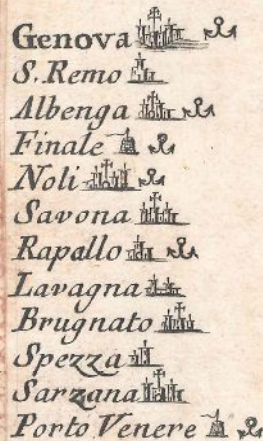 Genova
S. Remo
Albenga
Finale
Noli
Savona
Rapallo
Lavagna
Brugnato
Spezza
Sarzana
Porto Venere